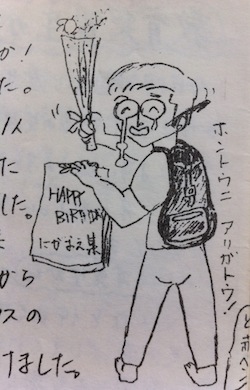 か!
た。
1人
た
した。
から
スの
けました。
HAPPY
BIRTHDAY
にがまえ集
ホントウニ アリガトウ!